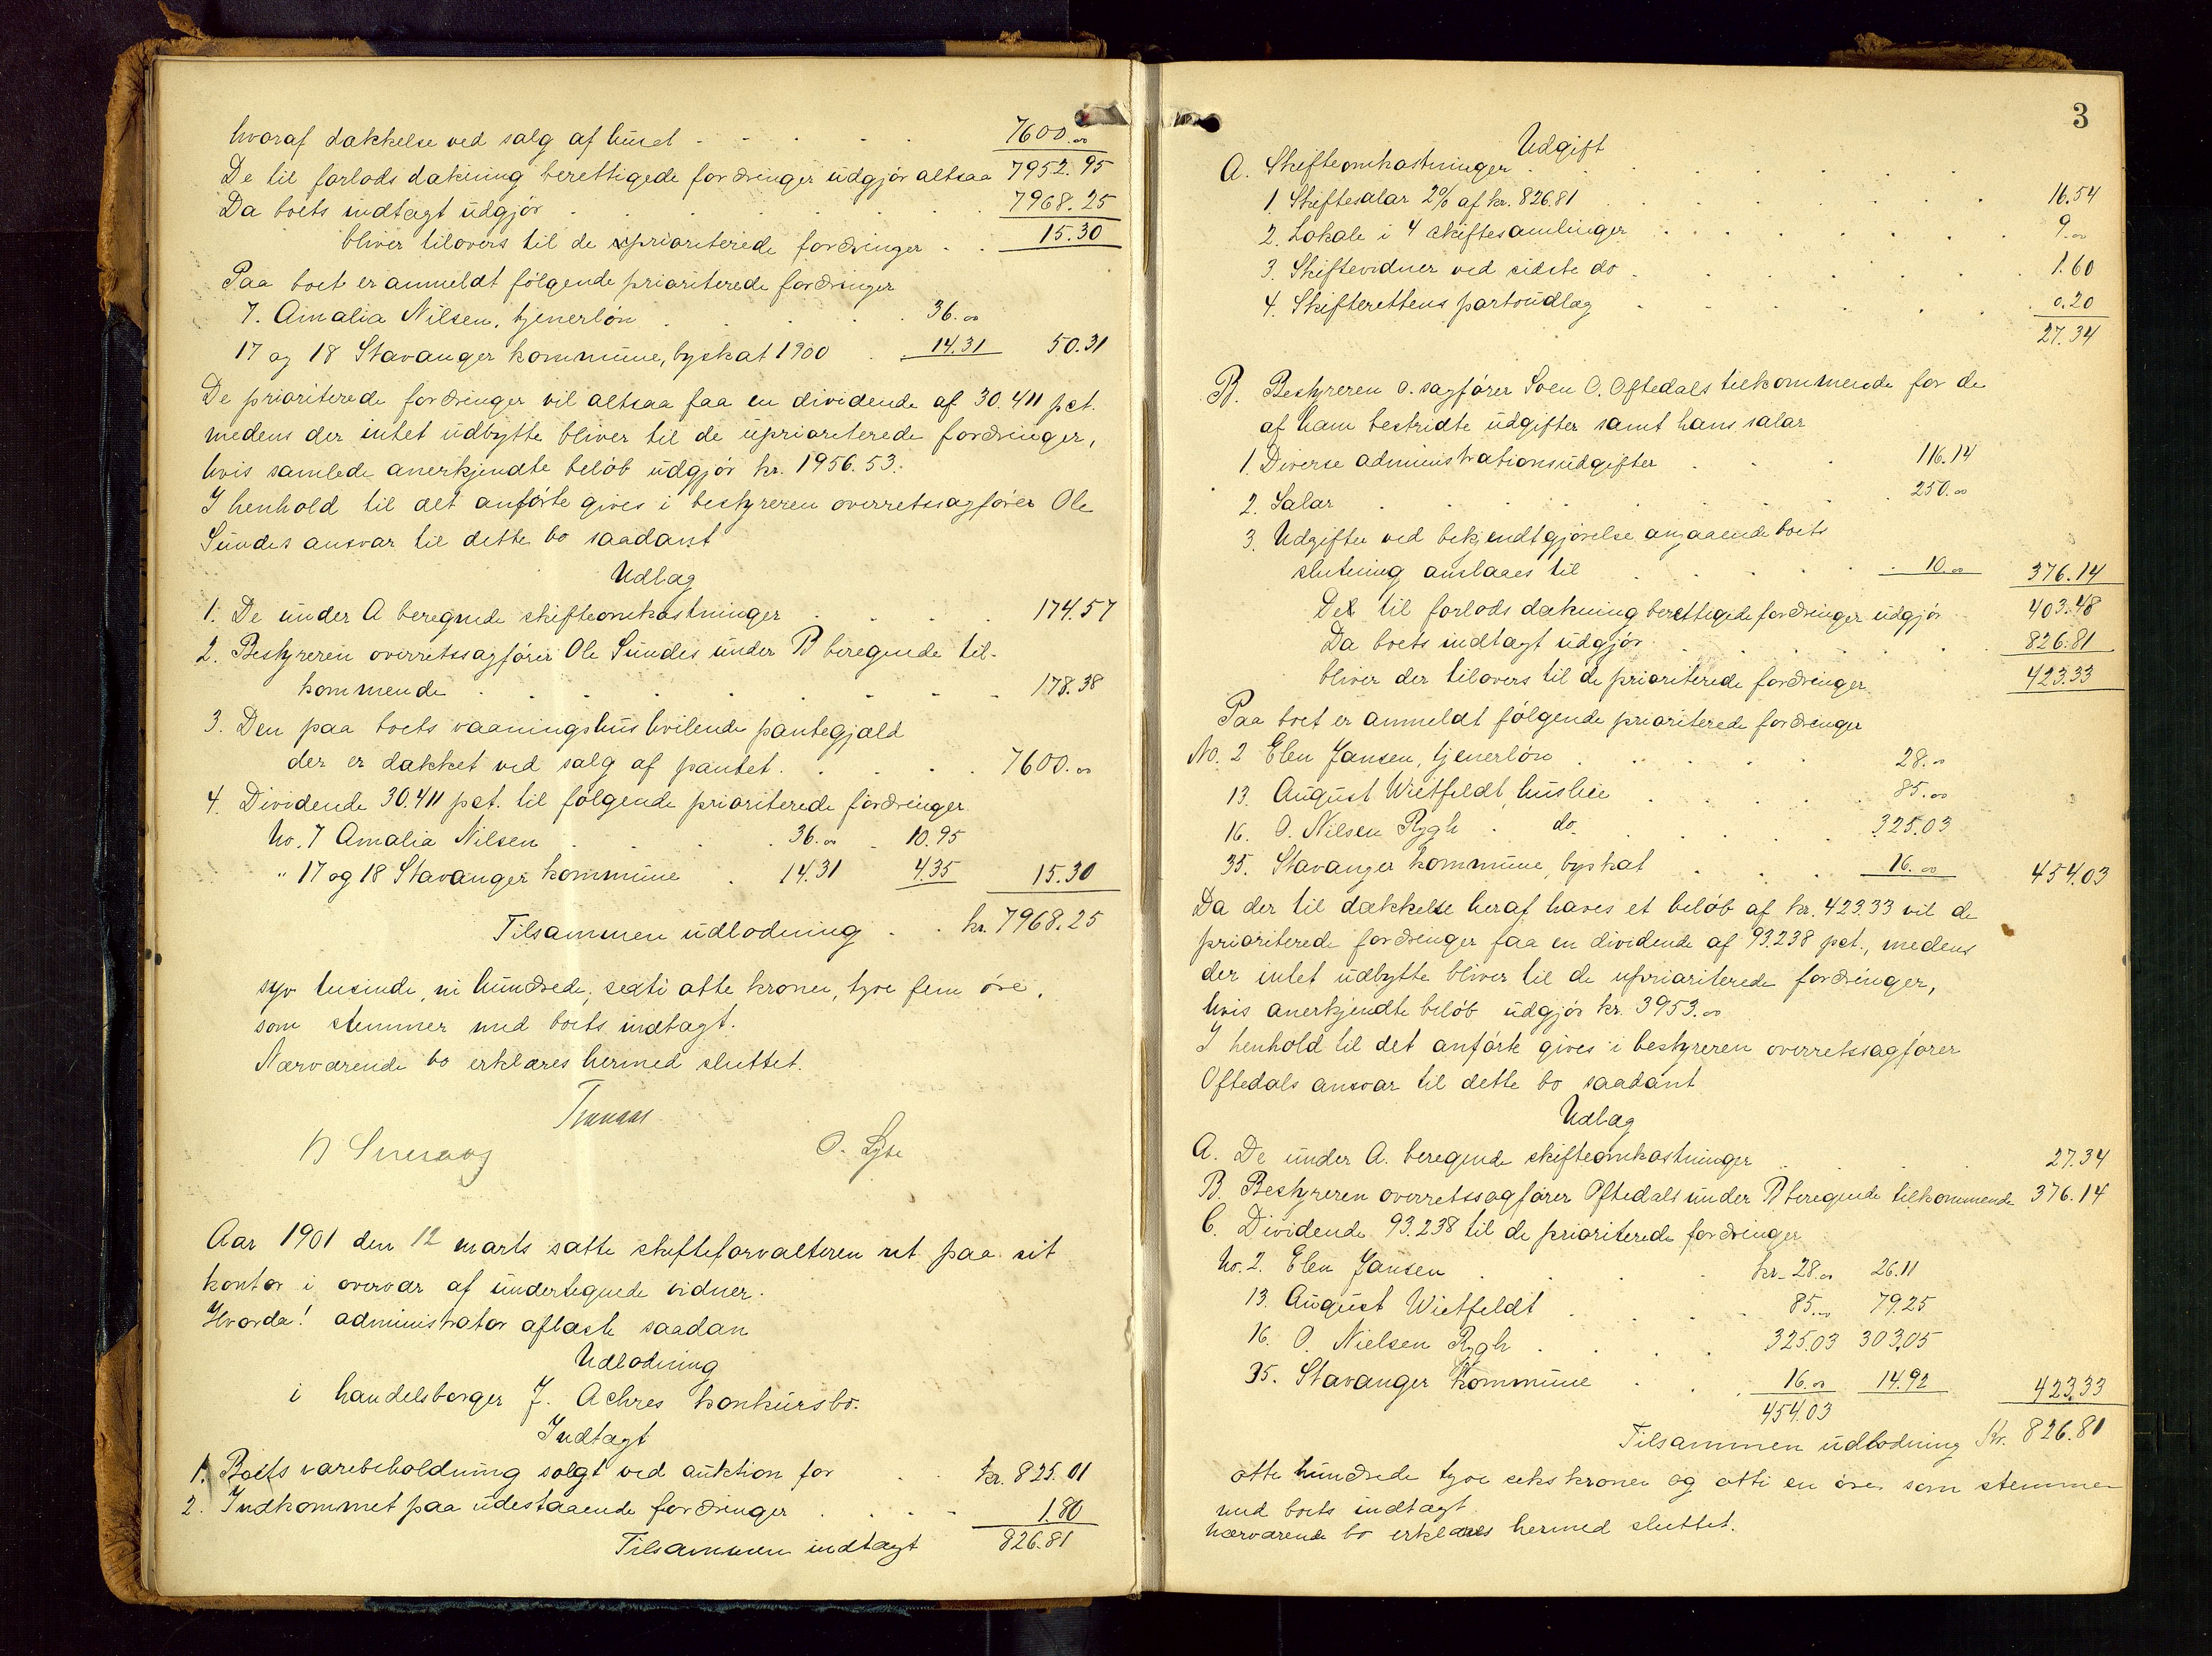 hvoraf dækkelse ved salg af huset . . . . . 7600.00
De til forlods dækning berettigede fordringer udgjør altsaa 7952.95
Da boets indtægt udgjør . . . . . 7968.25
bliver tilovers til de prioriterede fordringer . . 15.30
Paa boet er anmeldt følgende prioriterede fordringer
7. Amalia Nilsen, tjenerløn . . . . . 36.00
17 og 18 Stavanger kommune, byskat 1900 . 14.31 50.31
De prioriterede fordringer vil altsaa faa en dividende af 30.411 pct.
medens der intet udbytte bliver til de uprioriterede fordringer,
hvis samlede anerkjendte beløb udgjør kr. 1956.53.
I henhold til det anførte gives i bestyreren overretssagfører Ole
Sundes ansvar til dette bo saadant
Udlæg
1. De under A beregnede skifteomkostninger . . . . 174.57
2. Bestyreren overretssagfører Ole Sundes under B beregnede til-
kommende . . . . . . . . 178.38
3. Den paa boets vaaningshus hvilende pantegjæld
der er dækket ved salg af pantet . . . . 7600.00
4. Dividende 30.411 pct. til følgende prioriterede fordringer
No. 7 Amalia Nilsen . . . . 36.00 . 10.95
" 17 og 18 Stavanger kommune . 14.31 4.35 15.30
Tilsammen udlodning . . kr. 7968.25
syv tusinde, ni hundrede, sexti otte kroner, tyve fem øre,
som stemmer med boets indtægt.
Nærværende bo erklæres hermed sluttet.
O. Lyse
Aar 1901 den 12 marts satte skifteforvalteren ret paa sit
kontor i overvær af undertegnede vidner.
Hvorda! administrator aflagde saadan
Udlodning
i handelsborger J. Achres konkursbo.
Indtægt
1. Boets varebeholdning solgt ved auktion for . . kr. 825.01
2. Indkommet paa udestaaende fordringer . . . . 1.80
Tilsammen indtægt 826.81
3
Udgift
A. Skifteomkostninger . . . . . . . .
1. Skiftesalær 2% af kr. 826.81 . . . . . 16.54
2. Lokale i 4 skiftesamlinger . . . . . . 9.00
3. Skiftevidner ved sidste do . . . . . . 1.60
4. Skifterettens portoudlæg . . . . . 0.20
27.34
B. Bestyreren o. sagfører Sven O. Oftedals tilkommende for de
af ham bestridte udgifter samt hans salær
1. Diverse administrationsudgifter . . . 116.14
2. Salær . . . . . . . 250.00
3. Udgifter ved bekjendtgjørelse angaaende boets
slutning anslaaes til . . . . . 10.00 376.14
De til forlods dækning berettigede fordringer udgjør 403.48
Da boets indtægt udgjør . . . . . . 826.81
bliver der tilovers til de prioriterede fordringer 423.33
Paa boet er anmeldt følgende prioriterede fordringer
No. 2 Elen Jansen, tjenerløn . . . . . 28.00
13. August Wietfeldt, husleie . . . . 85.00
16. O. Nilsen Rygh . do. . . . . 325.03
35. Stavanger kommune, byskat . . . . 16.00 454.03
Da der til dækkelse heraf haves et beløb af kr. 423.33 vil de
prioriterede fordringer faa en dividende af 93.238 pct., medens
der intet udbytte bliver til de uprioriterede fordringer,
hvis anerkjendte beløb udgjør kr. 3953.00
I henhold til det anførte gives i bestyreren overretssagfører
Oftedals ansvar til dette bo saadant
Udlæg
A. De under A. beregnede skifteomkostninger . . . 27.34
B. Bestyreren overretssagfører Oftedals under B beregnede tilkommende 376.14
C. Dividende 93.238 til de prioriterede fordringer
No. 2. Elen Jansen . . . . kr. 28.00 26.11
13. August Wietfeldt . . . . 85.00 79.25
16. O. Nielsen Rygh . . . . 325.03 303.05
35. Stavanger Kommune . . . 16.00 14.92 423.33
454.03
Tilsammen udlodning Kr. 826.81
otte hundrede tyve seks kroner og otti en øre som stemmer
med boets indtægt.
Nærværende bo erklæres hermed sluttet.